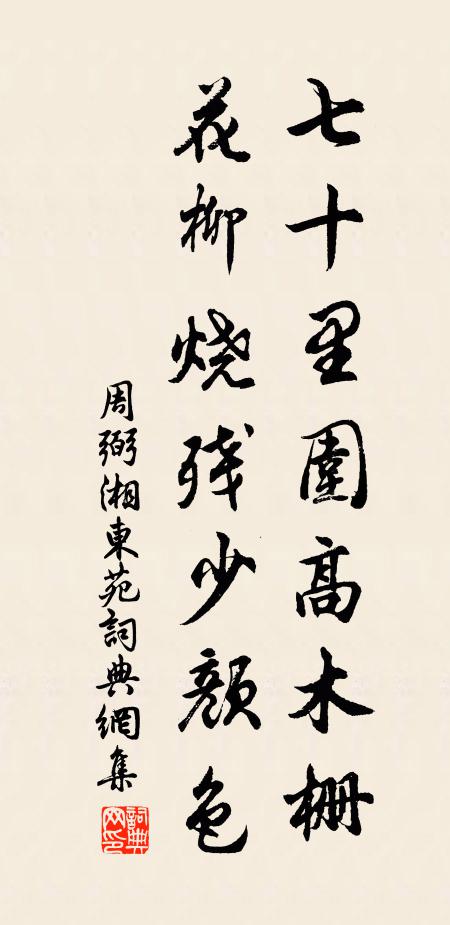 七十里圍高木柵
花柳烧残少顏色
周弼湘東苑詞典網集
詞典網印